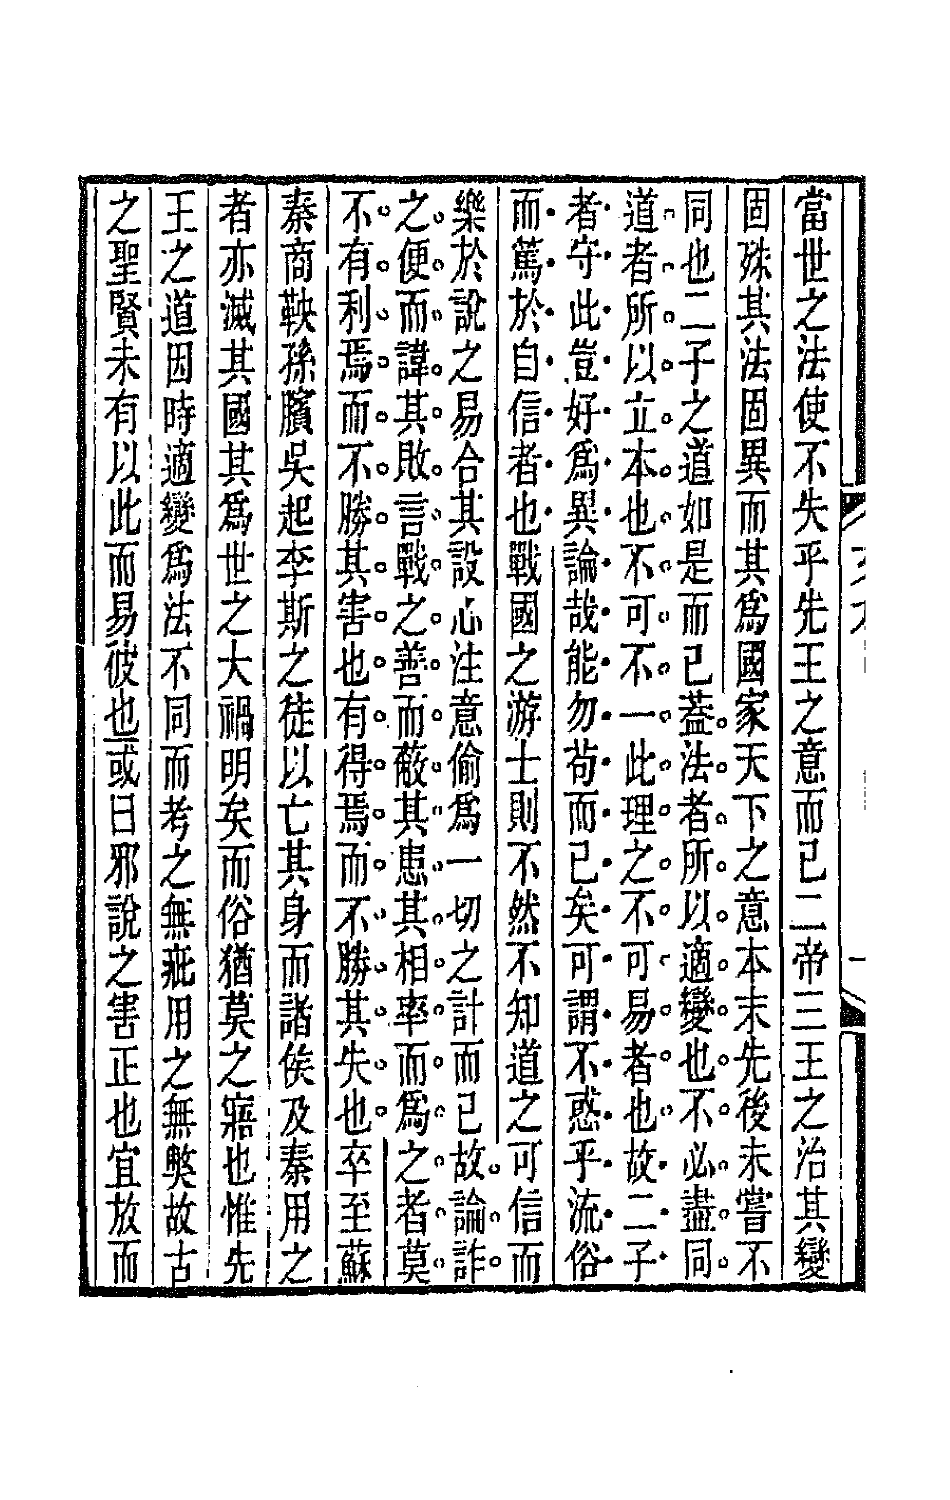 當世之法使不失乎先王之意而已二帝三王之治其變
固殊其法固異而其爲國家天下之意本末先後未嘗不
同也二子之道如是而已蓋法者所以適變也不必盡同
道者所以立本也不可不一此理之不可易者也故二子
者守此豈好爲異論哉能勿茍而已矣可謂不惑乎流俗
而篤於自信者也戰國之游士則不然不知道之可信而
樂於說之易合其設心注意偷爲一切之計而已故論詐
之便而諱其敗言戰之善而蔽其患其相率而爲之者莫
不有利焉而不勝其害也有得焉而不勝其失也卒至蘇
秦商鞅孫臏吳起李斯之徒以亡其身而諸侯及秦用之
者亦滅其國其爲世之大禍明矣而俗猶莫之寤也惟先
王之道因時適變爲法不同而考之無疵用之無弊故古
之聖賢未有以此而易彼也或曰邪說之害正也宜放而